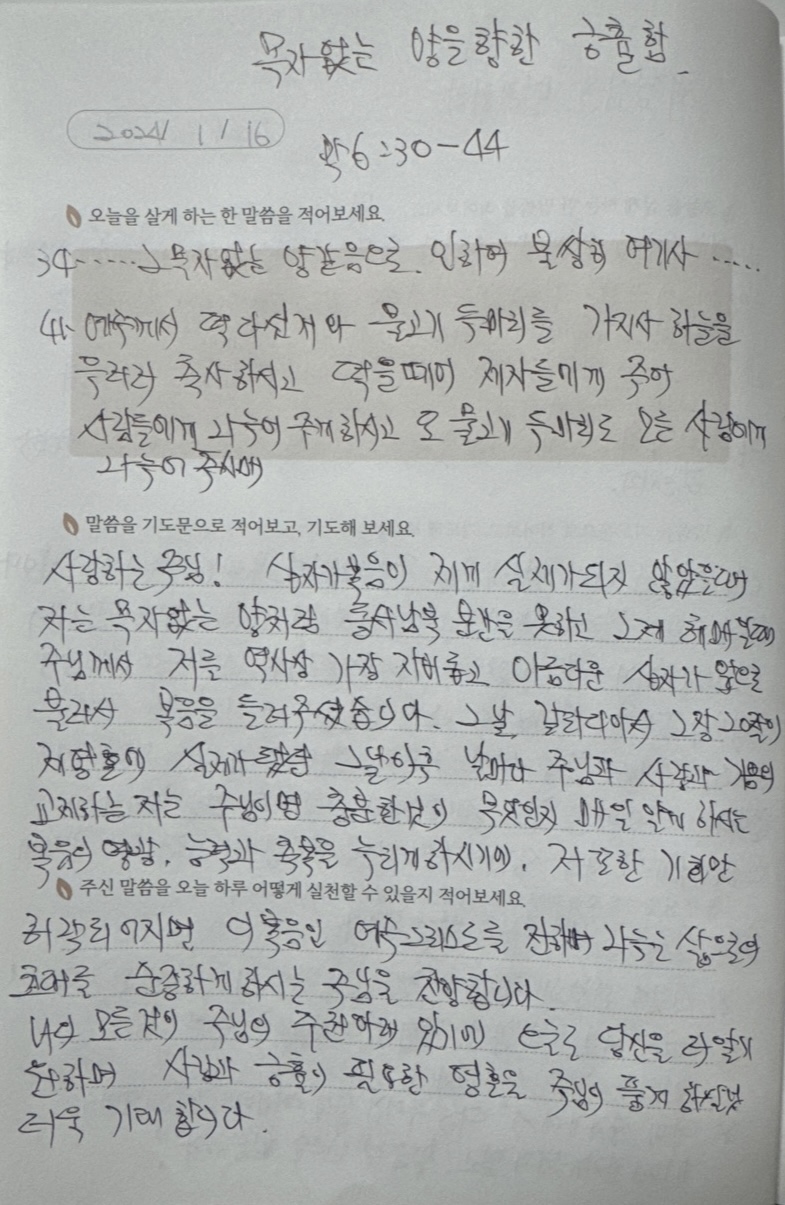 목자없는 양을향한 긍휼함.
2024 / 1 / 16
막6:30-44
오늘을 살게 하는 한 말씀을 적어보세요.
34······그 목자없는 양같음으로. 인하여 불쌍히 여기사 ·····
41. 예수께서 떡 다섯개와 물고기 두마리를 가지사 하늘을
우러러 축사하시고 떡을떼어 제자들에게 주어
사람들에게 나누어 주게하시고 또 물고기 두마리도 모든 사람에게
나누어 주시매
말씀을 기도문으로 적어보고, 기도해 보세요.
사랑하는 주님! 십자가복음이 제게 실제가되지 않았을때
저는 목자없는 양처럼 동서남북 분간을 못하고 그저 헤매일때
주님께서 저를 역사상 가장 자비롭고 아름다운 십자가 앞으로
불러서 복음을 들려주셨습니다. 그날, 갈라디아서 2장20절이
제영혼에 실제가 됐습 그날이후 날마다 주님과 사랑과 기쁨의
교제하는 저는 주님이면 충분한것이 무엇인지 매일 알게 하시는
복음의 영광, 능력과 축복을 누리게하시기에, 저 또한 기회만
주신 말씀을 오늘 하루 어떻게 실천할 수 있을지 적어보세요.
허락되어지면 이 복음인 예수그리스도를 전하며 나누는 삶으로의
초대를 순종하게 하시는 주님을 찬양합니다.
나의 모든것이 주님의 주권아래 있기에 오늘도 당신을 더 알기
원하며 사랑과 긍휼이 필요한 영혼을 주님이 품게 하실것
더욱 기대 합니다.